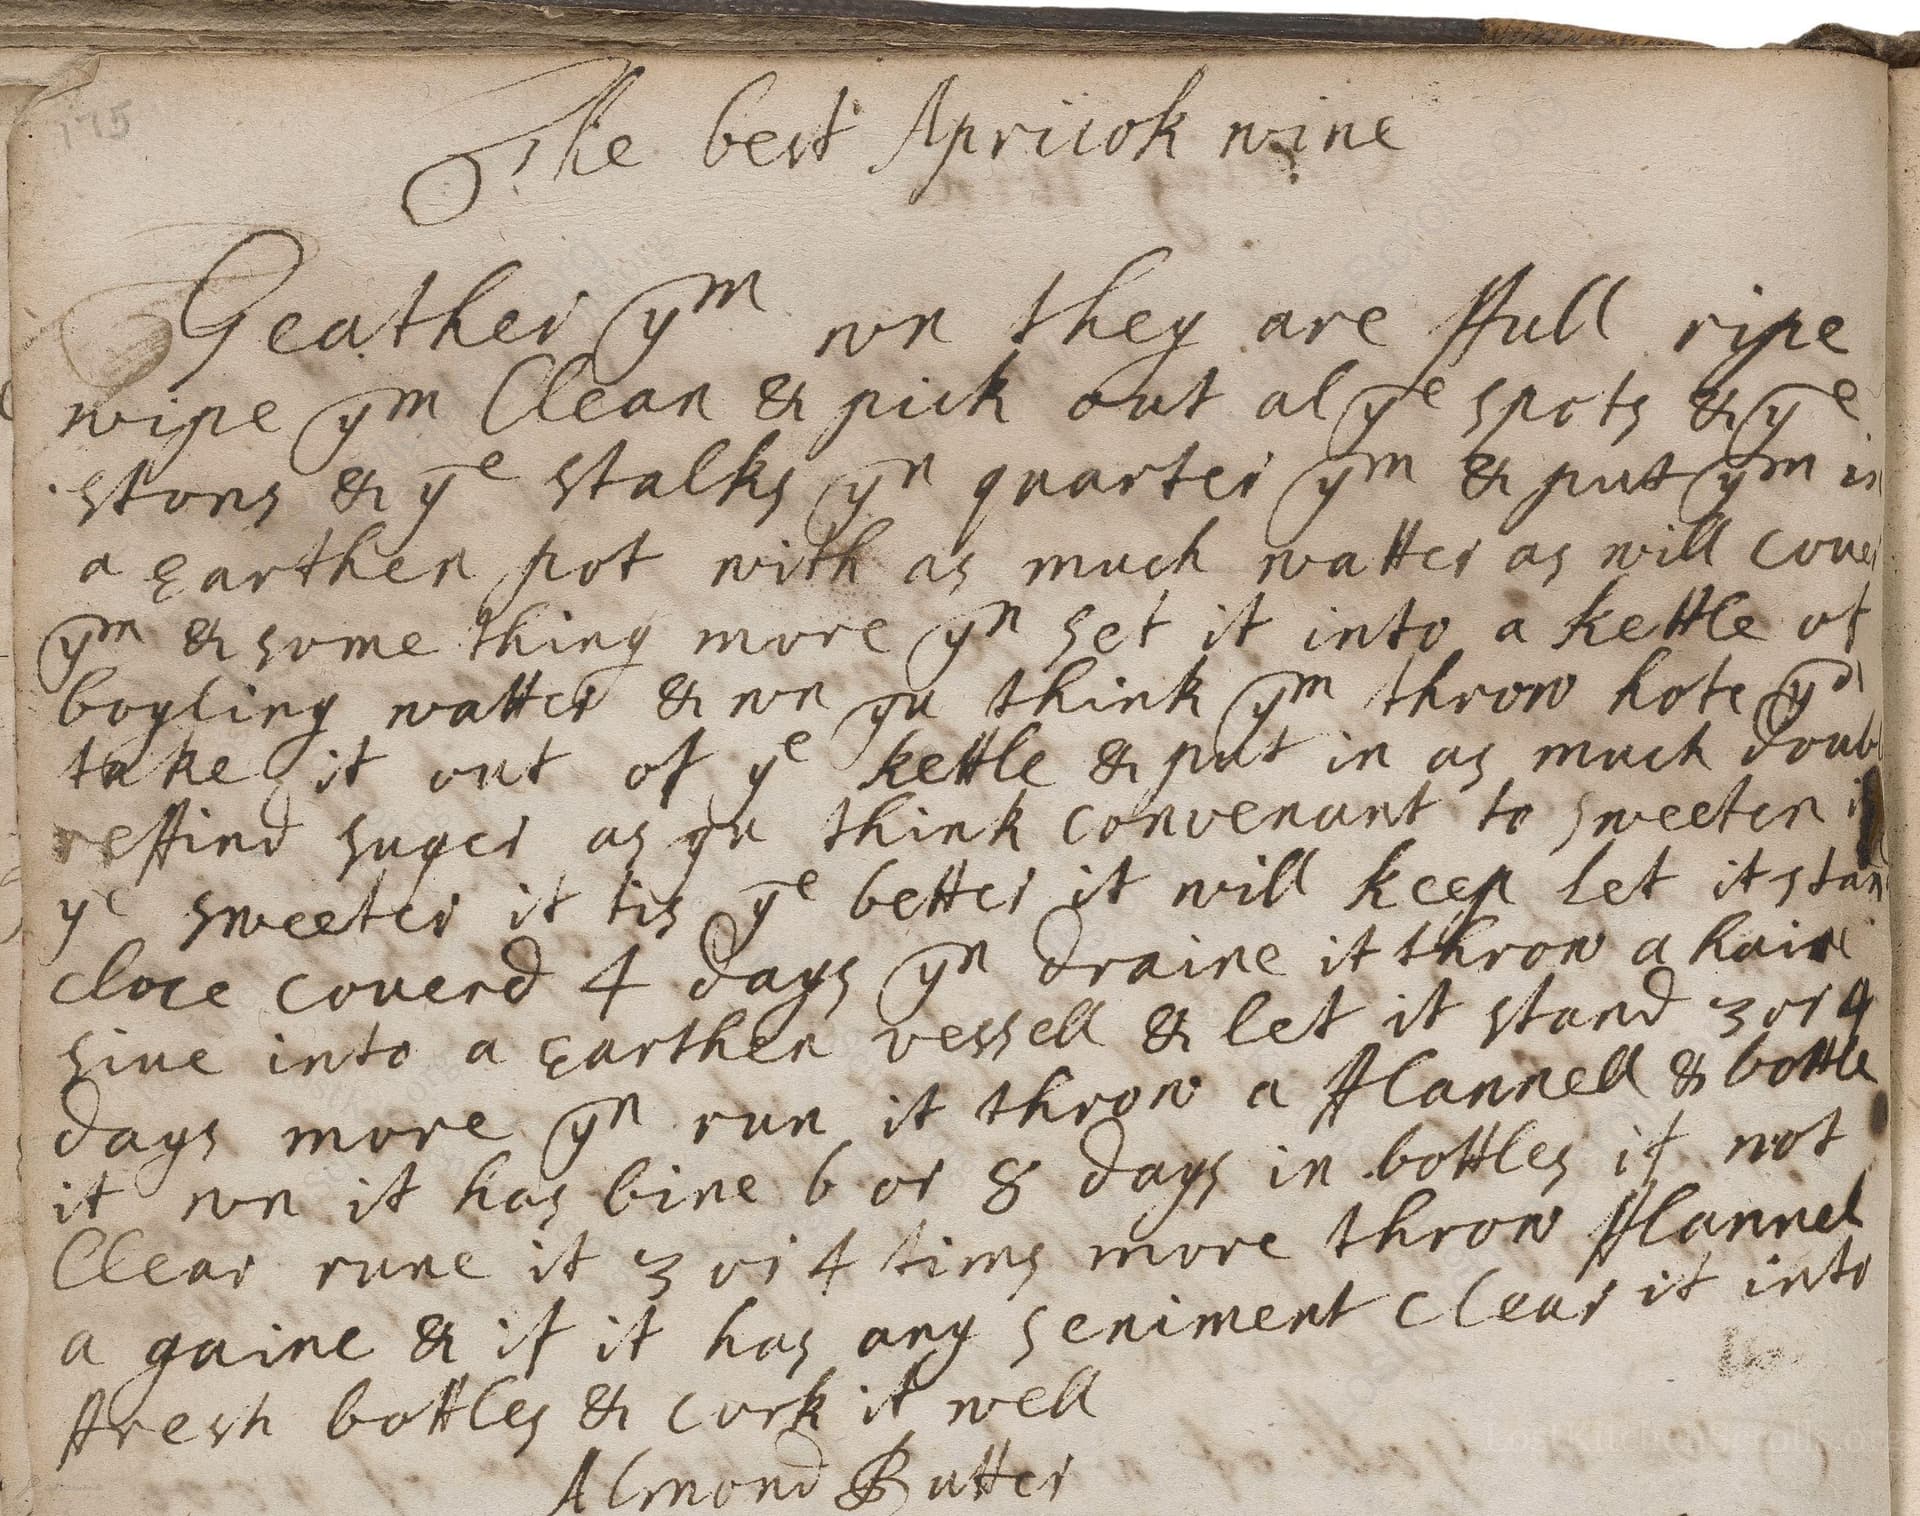 175
The best Apricok wine
Geather ym wn they are ffull ripe
wipe ym Clean & pick out al ye spots & ye
stons & ye stalks yn quarter ym & putt ym in
a Earthen pot with as much watter as will couer
ym & some thing more yn set it into a kettle of
boyling watter & wn yu think ym throw hote yn
take it out of ye kettle & put in as much doubl
reffind suger as yu think convenant to sweeten it
ye sweeter it tis ye better it will keep let it stan
cloce couerd 4 days yn draine it throw a haire
siue into a Earthen vessell & let it stand 3 or 4
days more yn run it throw a fflannell & bottle
it wn it has bine 6 or 8 days in bottles if not
Clear rune it 3 or 4 tims more throw fflannel
a gaine & if it has any seniment clear it into
ffresh bottles & cork it well
Almond Butter
LostKitchenScrolls.org